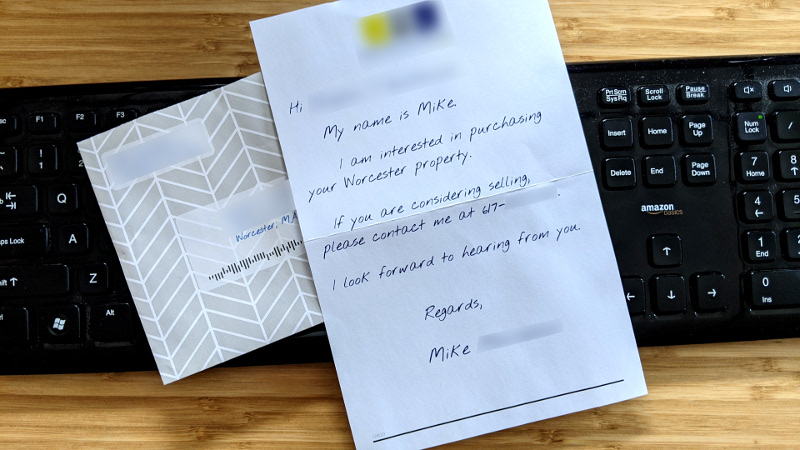 Hi
My name is Mike.
I am interested in purchasing
your Worcester property.
If you are considering selling,
please contact me at 617-
I look forward to hearing from you.
Regards,
Mike
Worcester, MA
F1 F2 F3
Q
Caps Lock
A
Z
Alt
PrtScn
SysRq
Scroll
Lock
Pause
Break
Insert
Home
Page
Up
Num
Lock
Delete
End
Page
Down
7
Home
8
4
5
1
End
2
0
Ins
amazon
basics